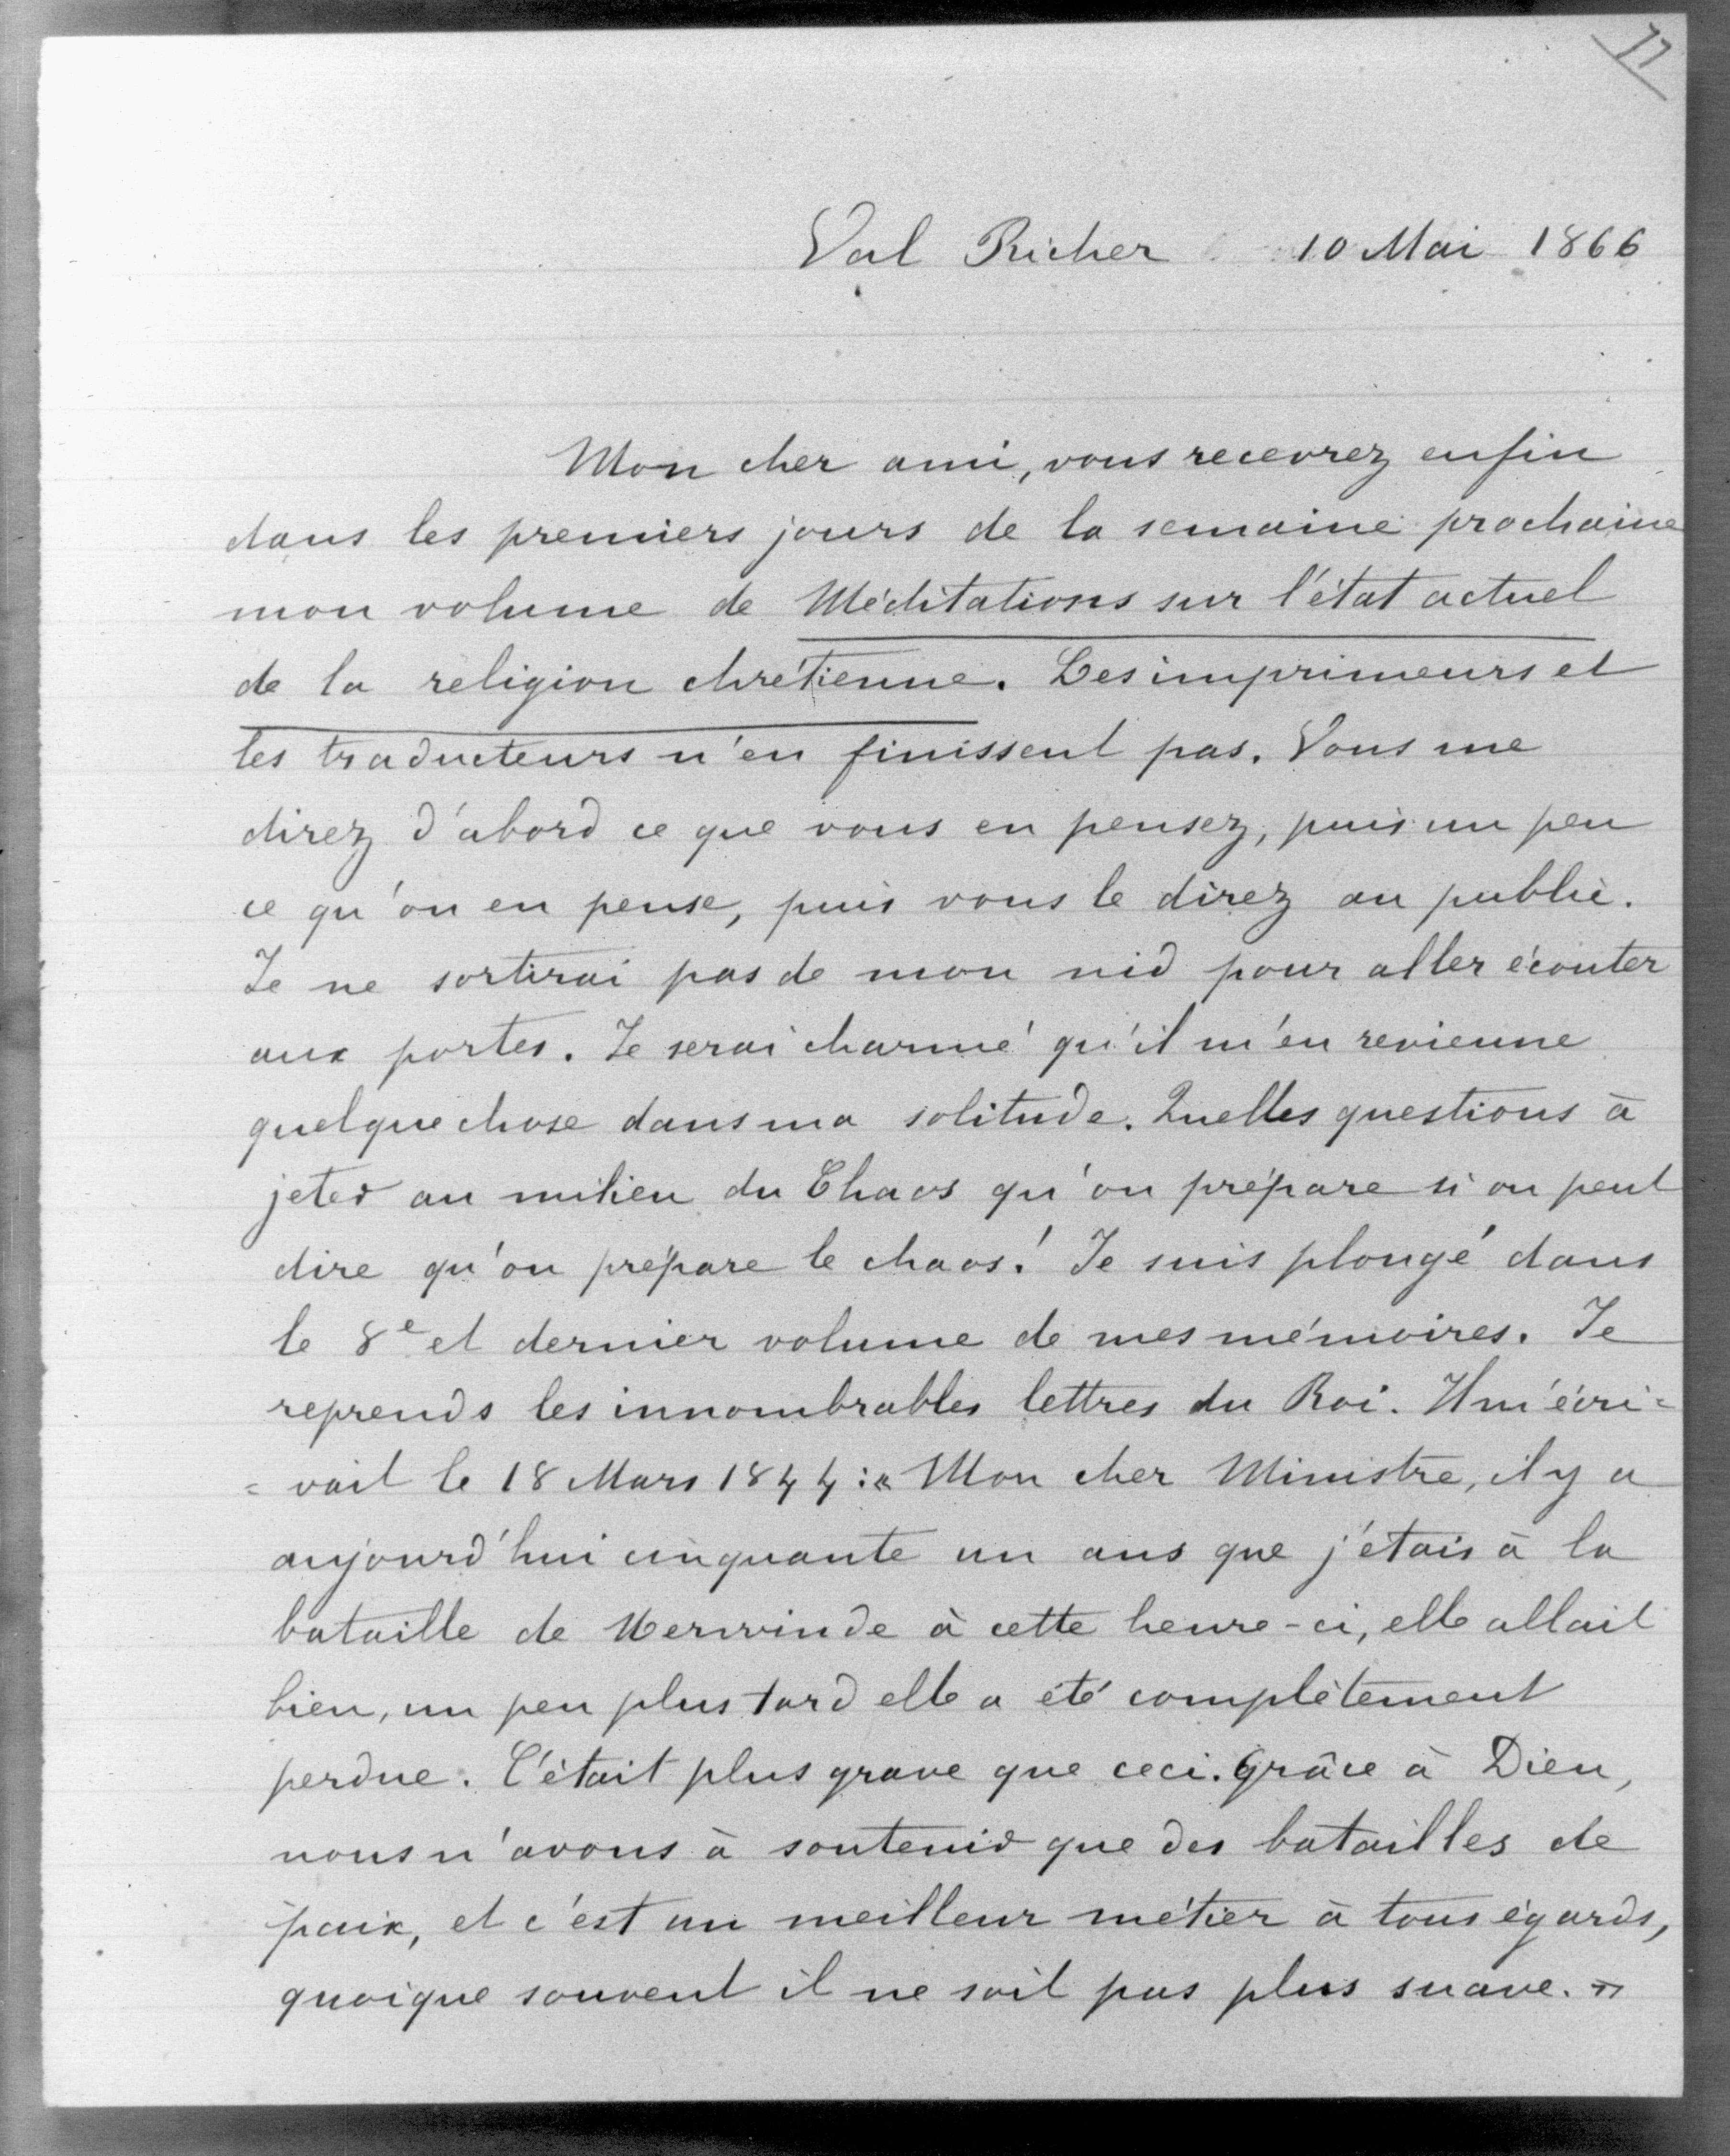 11
Val Richer 10 Mai 1866
Mon cher ami, vous recevrez enfin
dans les premiers jours de la semaine prochaine
mon volume de Méditations sur l'état actuel
de la religion chrétienne. Les imprimeurs et
les traducteurs n'en finissent pas. Vous me
direz d'abord ce que vous en pensez, puis un peu
ce qu'on en pense, puis vous le direz au public.
Je ne sortirai pas de mon nid pour aller écouter
aux portes. Je serai charmé qu'il m'en revienne
quelque chose dans ma solitude. Quelles questions à
jeter au milieu du Chaos qu'on prépare si on peut
dire qu'on prépare le chaos! Je suis plongé dans
le 8e et dernier volume de mes mémoires. Je
reprends les innombrables lettres du Roi. Il m'écri=
=vait le 18 Mars 1844 : « Mon cher Ministre, il y a
aujourd'hui cinquante un ans que j'étais à la
bataille de Nerwinde à cette heure-ci, elle allait
bien, un peu plus tard elle a été complètement
perdue. C'était plus grave que ceci. Grâce à Dieu,
nous n'avons à soutenir que des batailles de
paix, et c'est un meilleur métier à tous égards,
quoique souvent il ne soit pas plus suave. »